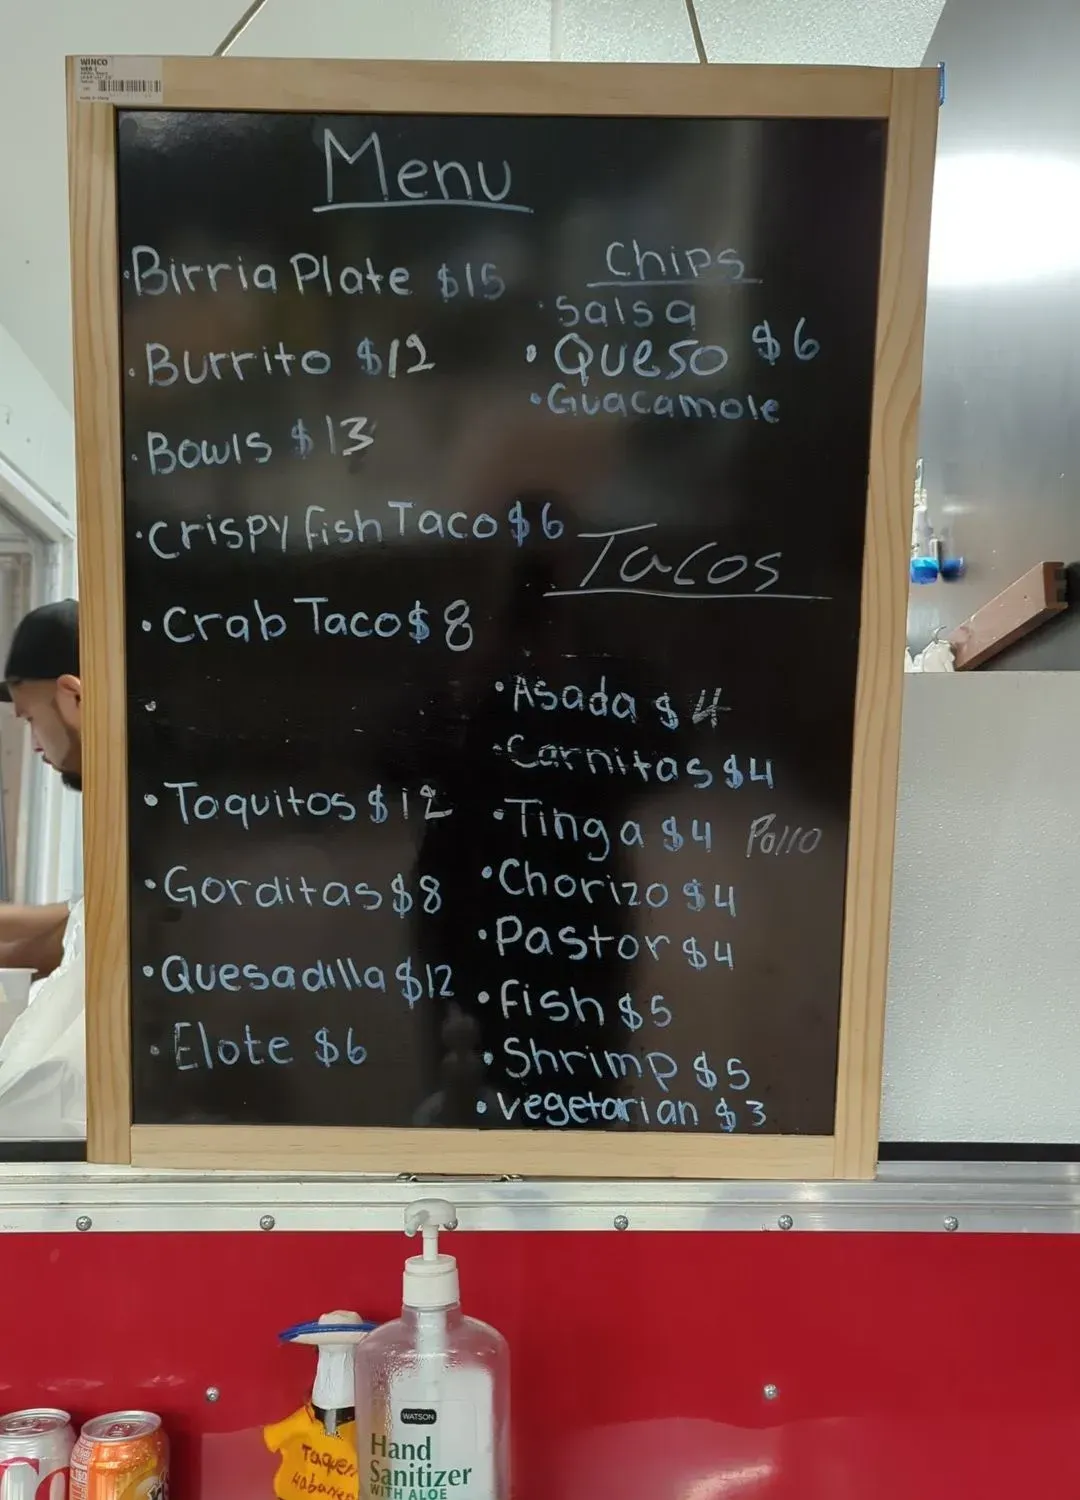 WINCO
Menu
Birria Plate $15
Burrito $12
Bowls $13
Crispy fish Taco $6
Crab Taco $8
Toquitos $12
Gorditas $8
Quesadilla $12
Elote $6
Chips
Salsa
Queso $6
Guacamole
Tacos
Asada $4
Carnitas $4
Tinga $4 Pollo
Chorizo $4
Pastor $4
fish $5
Shrimp $5
vegetarian $3
WATSON
Hand
Sanitizer
WITH ALOE